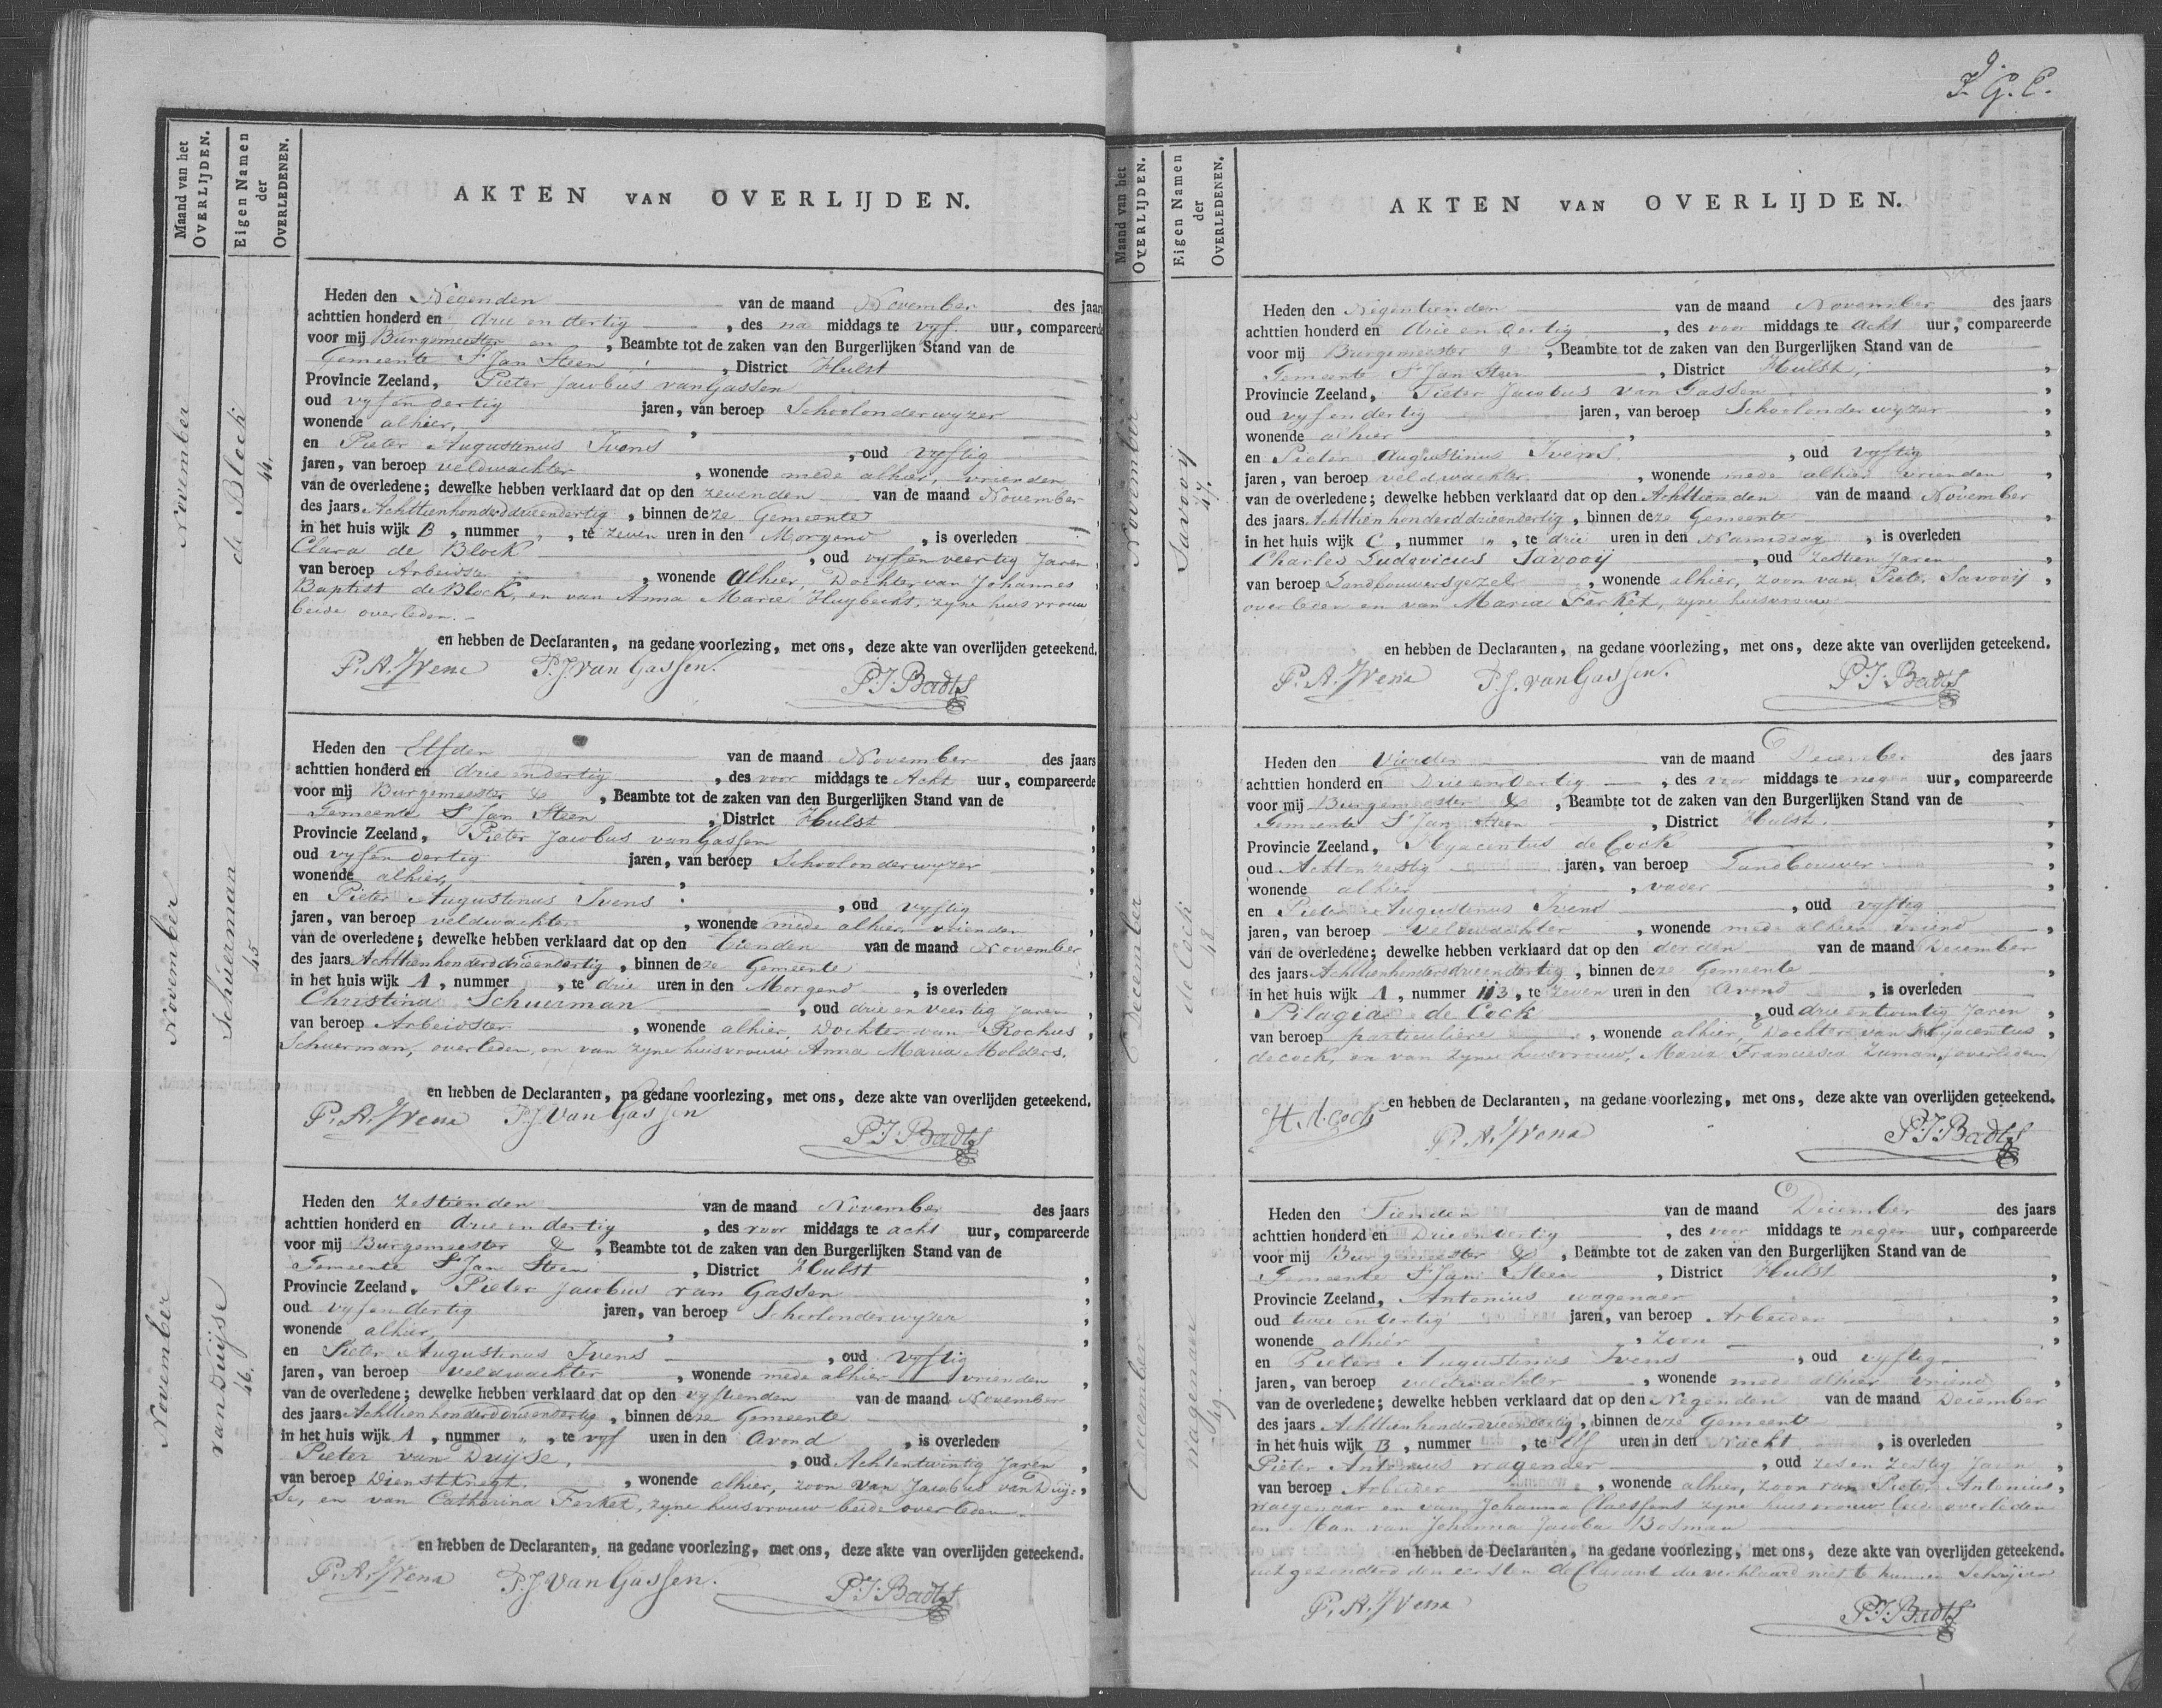 Maand van het
OVERLIJDEN.
Eigen Namen
der
OVERLEDENEN.
AKTEN VAN OVERLIJDEN.
November
de Block
44.
Heden den Negenden van de maand November des jaars
achttien honderd en drie en dertig , des na middags te vyf uur, compareerde
voor mij Burgemeester en , Beambte tot de zaken van den Burgerlijken Stand van de
Gemeente St Jan Steen , District Hulst
Provincie Zeeland, Pieter Jacobus van Gassen
oud vyf en dertig jaren, van beroep Schoolonderwyzer
wonende alhier,
en Pieter Augustinus Ivens , oud vyftig
jaren, van beroep veldwachter , wonende mede alhier, vrienden
van de overledene; dewelke hebben verklaard dat op den zevenden van de maand November
des jaars Achttienhonderddrieendertig , binnen deze Gemeente
in het huis wijk B , nummer „ , te zeven uren in den Morgend , is overleden
Clara de Block , oud vyf en veertig Jaren
van beroep Arbeidster , wonende alhier, Dochter van Johannes
Baptist de Block, en van Anna Marie Huybecht, zyne huisvrouw
beide overleden.
en hebben de Declaranten, na gedane voorlezing, met ons, deze akte van overlijden geteekend.
P. A. Ivens P. J. van Gassen. P. J. Badts
November
Schuerman
45
Heden den Elfden van de maand November des jaars
achttien honderd en drie en dertig , des voor middags te Acht uur, compareerde
voor mij Burgemeester & , Beambte tot de zaken van den Burgerlijken Stand van de
Gemeente St Jan Steen , District Hulst
Provincie Zeeland, Pieter Jacobus van Gassen
oud vyf en dertig jaren, van beroep Schoolonderwyzer
wonende alhier,
en Pieter Augustinus Ivens , oud vyftig
jaren, van beroep veldwachter , wonende mede alhier, vrienden
van de overledene; dewelke hebben verklaard dat op den tienden van de maand November
des jaars Achttienhonderddrieendertig , binnen deze Gemeente
in het huis wijk A , nummer , te drie uren in den Morgend , is overleden
Christina Schuerman , oud drie en veertig Jaren
van beroep Arbeidster , wonende alhier, Dochter van Rochus
Schuerman, overleden, en van zyne huisvrouw Anna Maria Molders.
en hebben de Declaranten, na gedane voorlezing, met ons, deze akte van overlijden geteekend.
P. A. Ivens P. J. Van Gassen P. J. Badts
November
van Duijse
46.
Heden den zestienden van de maand November des jaars
achttien honderd en drie en dertig , des voor middags te acht uur, compareerde
voor mij Burgemeester & , Beambte tot de zaken van den Burgerlijken Stand van de
Gemeente St Jan Steen , District Hulst
Provincie Zeeland, Pieter Jacobus van Gassen
oud vyf en dertig jaren, van beroep Schoolonderwyzer
wonende alhier,
en Pieter Augustinus Ivens , oud vyftig
jaren, van beroep veldwachter , wonende mede alhier vrienden
van de overledene; dewelke hebben verklaard dat op den vyftienden van de maand November
des jaars Achttienhonderddrieendertig , binnen deze Gemeente
in het huis wijk A , nummer „ , te vyf uren in den Avond , is overleden
Pieter van Duijse, , oud Achtentwintig Jaren
van beroep Dienstknegt , wonende alhier, zoon van Jacobus van Duij-
se, en van Catharina Ferket, zyne huisvrouw beide overleden.
en hebben de Declaranten, na gedane voorlezing, met ons, deze akte van overlijden geteekend.
P. A. Ivens P. J. Van Gassen. P. J. Badts
Maand van het
OVERLIJDEN.
Eigen Namen
der
OVERLEDENEN.
AKTEN VAN OVERLIJDEN.
November
Savooij
47.
Heden den Negentienden van de maand November des jaars
achttien honderd en drie en dertig , des voor middags te acht uur, compareerde
voor mij Burgemeester & , Beambte tot de zaken van den Burgerlijken Stand van de
Gemeente St Jan Steen , District Hulst,
Provincie Zeeland, Pieter Jacobus van Gassen
oud vyf en dertig jaren, van beroep Schoolonderwyzer
wonende alhier
en Pieter Augustinus Ivens , oud vyftig
jaren, van beroep veldwachter , wonende mede alhier vrienden
van de overledene; dewelke hebben verklaard dat op den Achttienden van de maand November
des jaars Achttienhonderddrieendertig , binnen deze Gemeente
in het huis wijk C , nummer „ , te drie uren in den Namiddag , is overleden
Charles Ludovicus Savooij , oud zestien Jaren
van beroep Landbouwersgezel , wonende alhier, zoon van Pieter Savooij
overleden en van Maria Ferket, zyne huisvrouw
en hebben de Declaranten, na gedane voorlezing, met ons, deze akte van overlijden geteekend.
P. A. Ivens P. J. van Gassen. P. J. Badts
December
de Cock
48
Heden den Vierden van de maand December des jaars
achttien honderd en Drie en Dertig , des voor middags te negen uur, compareerde
voor mij Burgemeester & , Beambte tot de zaken van den Burgerlijken Stand van de
Gemeente St Jan Steen , District Hulst.
Provincie Zeeland, Hyacintus de Cock
oud Achtenzestig jaren, van beroep Landbouwer
wonende alhier , vader
en Pieter Augustinus Ivens , oud vyftig
jaren, van beroep veldwachter , wonende mede alhier vriend
van de overledene; dewelke hebben verklaard dat op den derden van de maand December
des jaars Achttienhonderddrieendertig , binnen deze Gemeente
in het huis wijk A , nummer 113 , te zeven uren in den Avond , is overleden
Pilagia de Cock , oud drie en twintig Jaren
van beroep particuliere , wonende alhier, Dochter van Hyacentus
de cock, en van zyne huisvrouw, Maria Francisca Zaman, overleden
en hebben de Declaranten, na gedane voorlezing, met ons, deze akte van overlijden geteekend.
H. d. Cock P. A. Ivens P. J. Badts
December
wagenaer
49.
Heden den Tienden van de maand December des jaars
achttien honderd en Drie en dertig , des voor middags te negen uur, compareerde
voor mij Burgemeester & , Beambte tot de zaken van den Burgerlijken Stand van de
Gemeente St Jan Steen , District Hulst
Provincie Zeeland, Antonius wagenaer
oud twee en dertig jaren, van beroep Arbeider
wonende alhier , zoon
en Pieter Augustinus Ivens , oud vyftig
jaren, van beroep veldwachter , wonende mede alhier vriend
van de overledene; dewelke hebben verklaard dat op den Negenden van de maand December
des jaars Achttienhonderddrieendertig , binnen deze Gemeente
in het huis wijk B , nummer , te Elf uren in den nacht , is overleden
Pieter Antonius wagenaer , oud zes en zestig Jaren
van beroep Arbeider , wonende alhier, zoon van Pieter Antonius
wagenaar en van Johanna Claessens zyne huisvrouw beide overleden
en Man van Johanna Jacoba Bosman
en hebben de Declaranten, na gedane voorlezing, met ons, deze akte van overlijden geteekend.
uitgezonderd den eersten declarant die verklaard niet te kunnen Schrijven
P. A. Ivens P. J. Badts